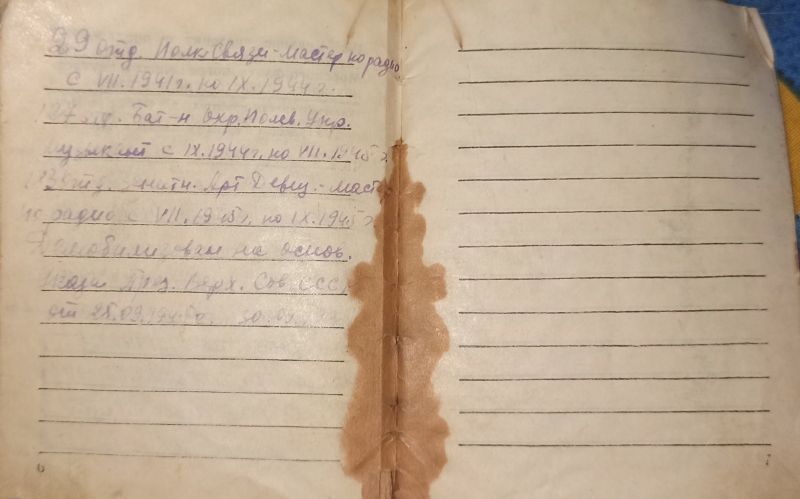 29 отд. Полк Связи - Мастер по радио
с VII.1941г. по IX.1944г.
Бат-н Охр. Полев. Упр.
с IX.1944г. по VII.1945г
Арт Дивиз. - Маст
по радио с VII.1945г. по IX.1945г
Демобилизован на основ.
Указа През. Верх. Сов СССР
от 25.09.1945г.
6
7